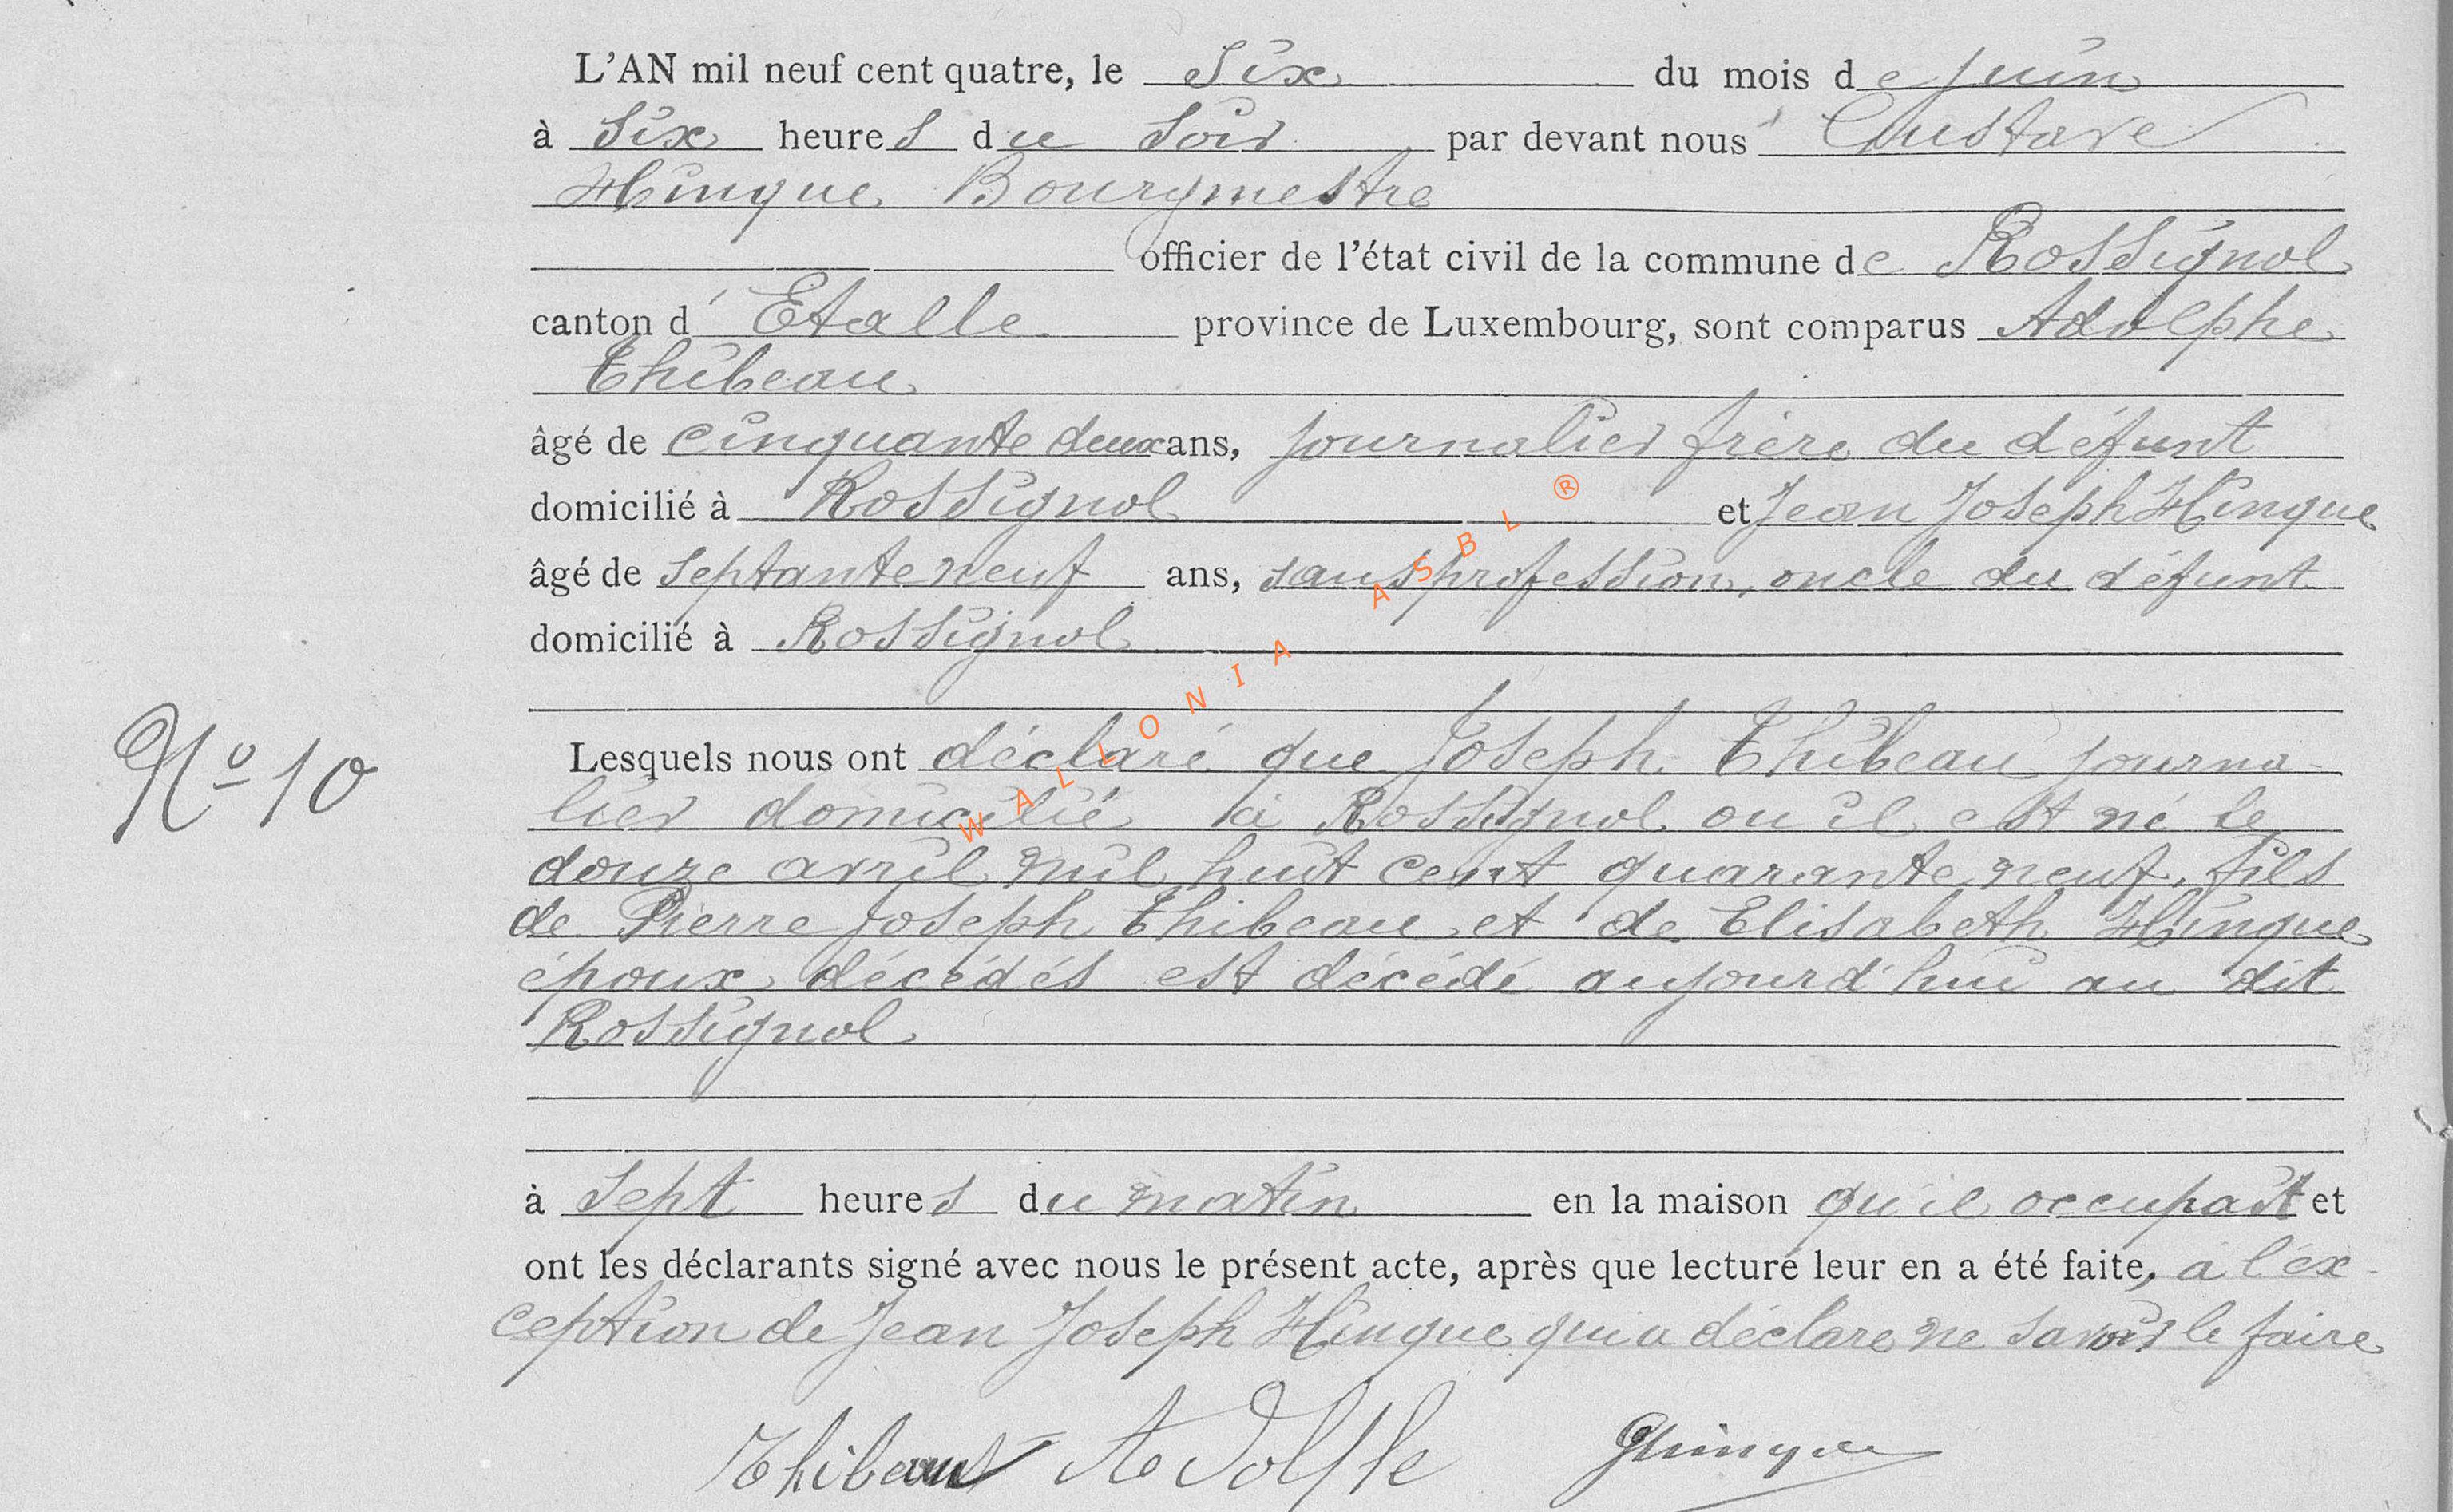 L'AN mil neuf cent quatre, le Six du mois de juin
à Six heures du Soir par devant nous Gustave
Hinque Bourgmestre
officier de l'état civil de la commune de Rossignol
canton d'Etalle province de Luxembourg, sont comparus Adolphe
Thibeau
âgé de cinquante deux ans, journalier frère du défunt
domicilié à Rossignol et Jean Joseph Hinque
âgé de septante neuf ans, sans profession, oncle du défunt
domicilié à Rossignol
Nº 10
Lesquels nous ont déclaré que Joseph Thibeau journa-
lier domicilié à Rossignol ou il est né le
douze avril mil huit cent quarante neuf, fils
de Pierre Joseph Thibeau et de Elisabeth Hinque
époux décédés est décédé aujourd'hui au dit
Rossignol
à sept heures du matin en la maison qu'il occupait et
ont les déclarants signé avec nous le présent acte, après que lecture leur en a été faite, a l'ex-
ception de Jean Joseph Hinque qui a déclare ne savoir le faire
Thibeau Adolphe GHinque
WALLONIA ASBL ®